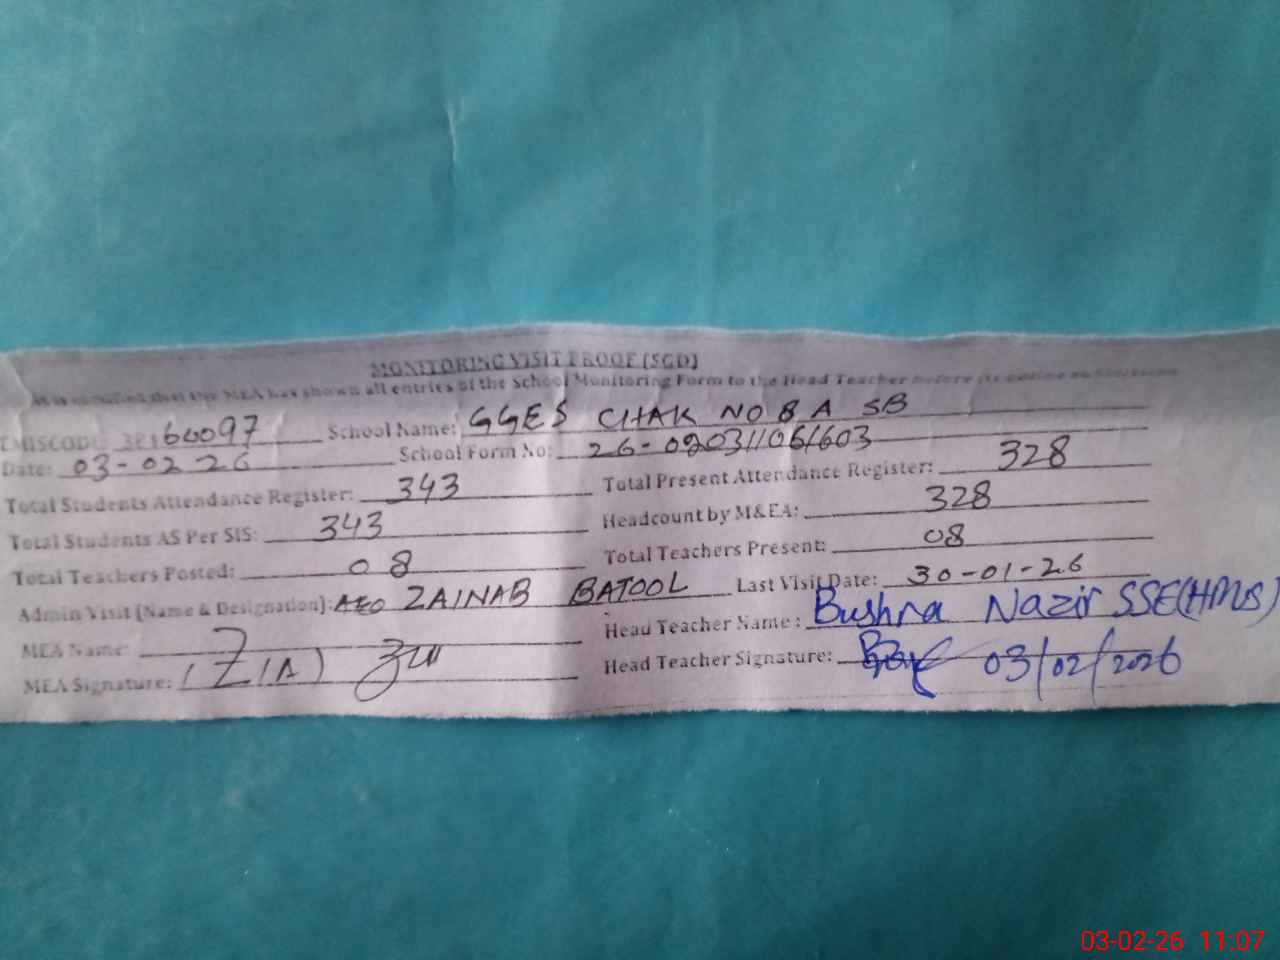 MONITORING VISIT PROOF (SGD)
It is certified that the MEA has shown all entries of the School Monitoring Form to the Head Teacher before its online submission
EMISCODE: 38160097 School Name: GGES CHAK NO 8 A SB
Date: 03-02 26 School Form No: 26-02031061603
Total Students Attendance Register: 343 Total Present Attendance Register: 328
Total Students AS Per SIS: 343 Headcount by M&EA: 328
Total Teachers Posted: 08 Total Teachers Present: 08
Admin Visit (Name & Designation): AEO ZAINAB BATOOL Last Visit Date: 30-01-26
MEA Name: Head Teacher Name: Bushra Nazir SSE(HMS)
MEA Signature: (ZIA) Head Teacher Signature: 03/02/2026
03-02-26 11:07